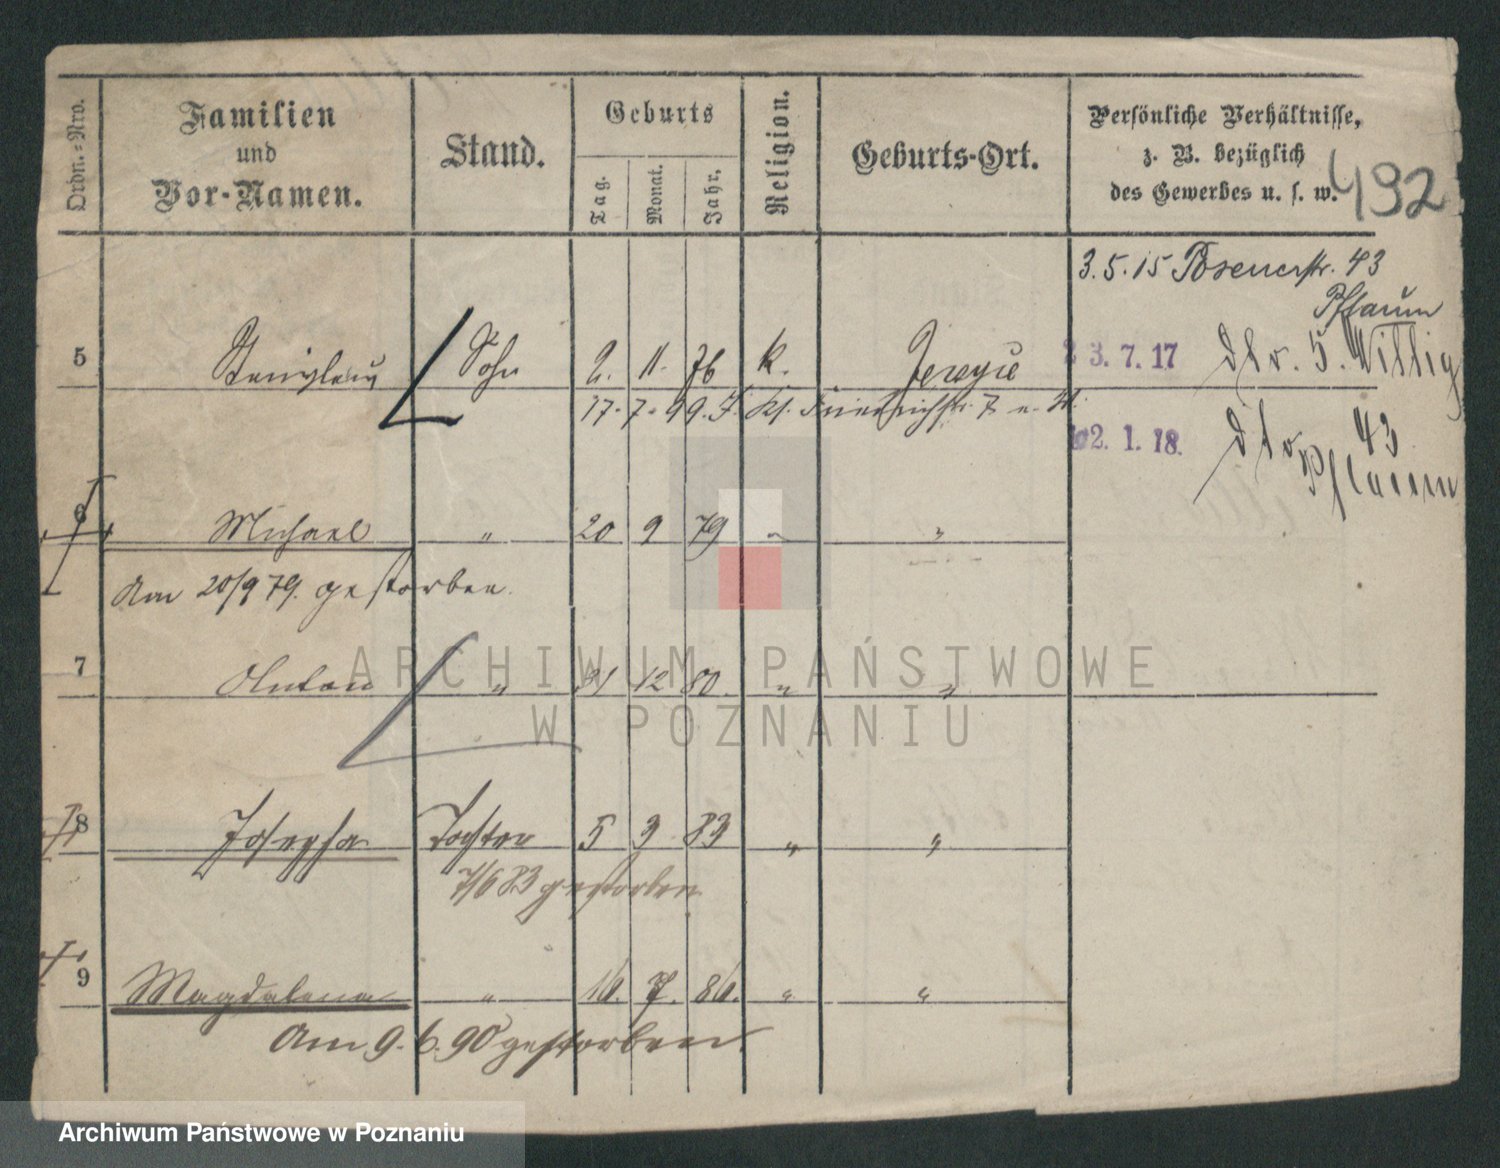 Ordn.-Nro.
Familien
und
Vor-Namen.
Stand.
Geburts
Tag.
Monat.
Jahr.
Religion.
Geburts-Ort.
Persönliche Verhältnisse,
z. B. bezüglich
des Gewerbes u. s. w.
492
3.5.15 Posenerstr. 43
Pflaum
5 Stanislaus Sohn 2. 11. 76 k. Jerzyce
3.7.17 dto. 5. Willig
17.7.99. Kl. Friedrichstr. 7
2.1.18. dto 43
Pflaum
6 Michael " 20 9 79 " "
Am 20/9 79. gestorben.
7 Anton " 31 12 80. " "
8 Josepha Tochter 5 3 83 " "
7/6 83 gestorben
9 Magdalena " 16. 7. 86. " "
Am 9. 6. 90 gestorben.
ARCHIWUM PAŃSTWOWE
W POZNANIU
Archiwum Państwowe w Poznaniu